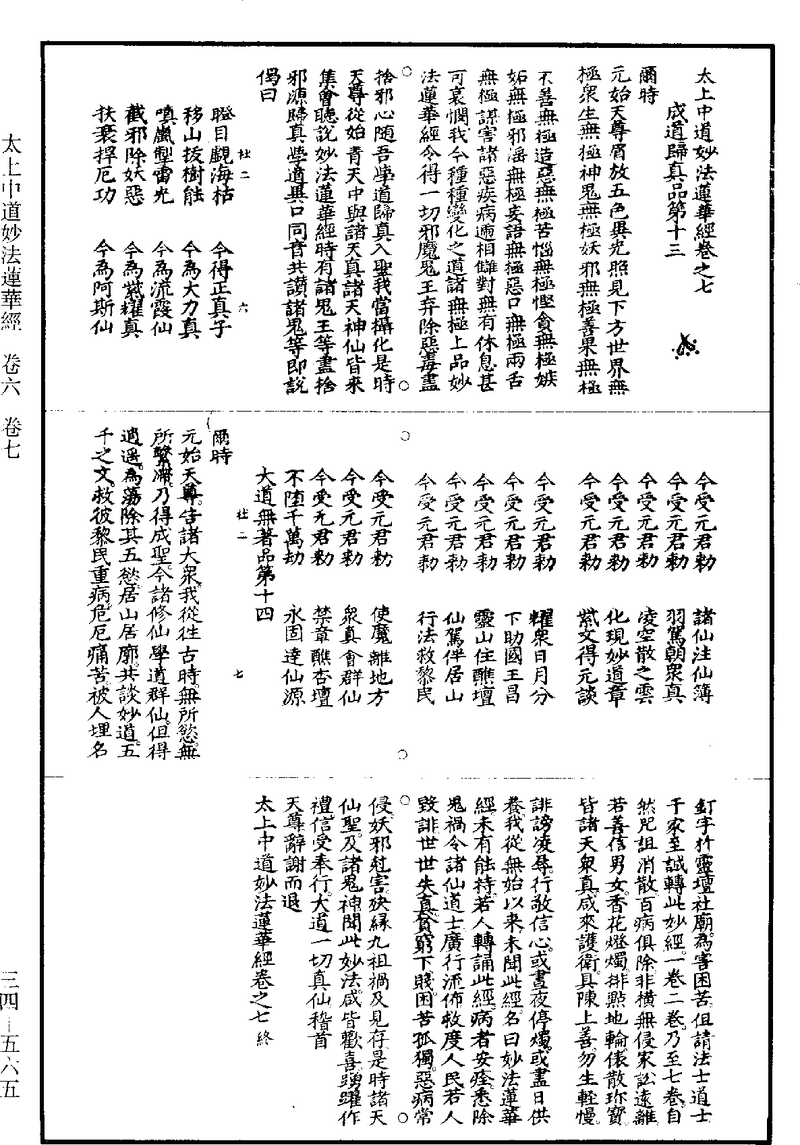 太上中道妙法蓮華經卷之七
成道歸真品第十三
爾時
元始天尊眉放五色異光照見下方世界無
極衆生無極神鬼無極妖邪無極善果無極
不善無極造惡無極苦惱無極慳貪無極嫉
妬無極邪婬無極妄語無極惡口無極兩舌
無極謀害諸惡疾病逓相讎對無有休息甚
可哀憫我今種種變化之道諸無極上品妙
法蓮華經令得一切邪魔鬼王弃除惡毒盡
捨邪心隨吾學道歸真入聖我當攝化是時
天尊從始青天中與諸天真諸天神仙皆來
集會聽說妙法蓮華經時有諸鬼王等盡捨
邪源歸真學道異口同音共讃諸鬼等即說
偈曰
瞪目覷海枯 今得正真子
杜二 六
移山拔樹能 今為大力真
嗔嵐掣雷光 今為流霞仙
截邪除妖惡 今為紫耀真
扶衰捍厄功 今為阿斯仙
今受元君勑 諸仙注仙簿
今受元君勑 羽駕朝衆真
今受元君勑 凌空散之雲
今受元君勑 化現妙道章
今受元君勑 紫文得元談
今受元君勑 耀衆日月分
今受元君勑 下助國王昌
今受元君勑 靈山住醮壇
今受元君勑 仙駕伴居山
今受元君勑 行法救黎民
今受元君勑 使魔離地方
今受元君勑 衆真會群仙
今受元君勑 禁章醮杏壇
不墮千萬劫 永固達仙源
大道無著品第十四
杜二 七
爾時
元始天尊告諸大衆我從往古時無所慾無
所繫滯乃得成聖今諸修仙學道群仙但得
逍遥為蕩除其五慾居山居廓共談妙道五
千之文救彼黎民重病危厄痛苦被人埋名
釘字於靈壇社廟為害困苦但請法士道士
于家至誠轉此妙經一卷二卷乃至七卷自
然咒詛消散百病俱除非橫無侵冢訟遠離
若善信男女香花燈燭排㸃地輪俵散珎寶
皆諸天衆真咸來護衛具陳上善勿生輕慢
誹謗凌辱行敬信心或晝夜停燭或晝日供
養我從無始以來未聞此經名曰妙法蓮華
經未有能持若人轉誦此經病者安痊悉除
鬼禍令諸仙道士廣行流佈救度人民若人
毀誹世世失真貧窮下賤困苦孤獨惡病常
侵妖邪尅害殃緣九祖禍及見存是時諸天
仙聖及諸鬼神聞此妙法咸皆歡喜踴躍作
禮信受奉行大道一切真仙稽首
天尊辭謝而退
太上中道妙法蓮華經卷之七 終
太上中道妙法蓮華經 卷六 卷七
三四－五六五